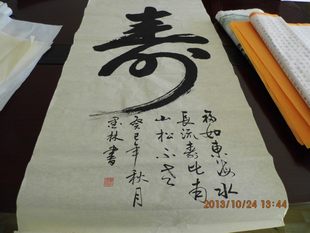 寿
福如東海水
長流寿比南
山松不老
癸巳年秋月
墨林書
2013/10/24 13:44